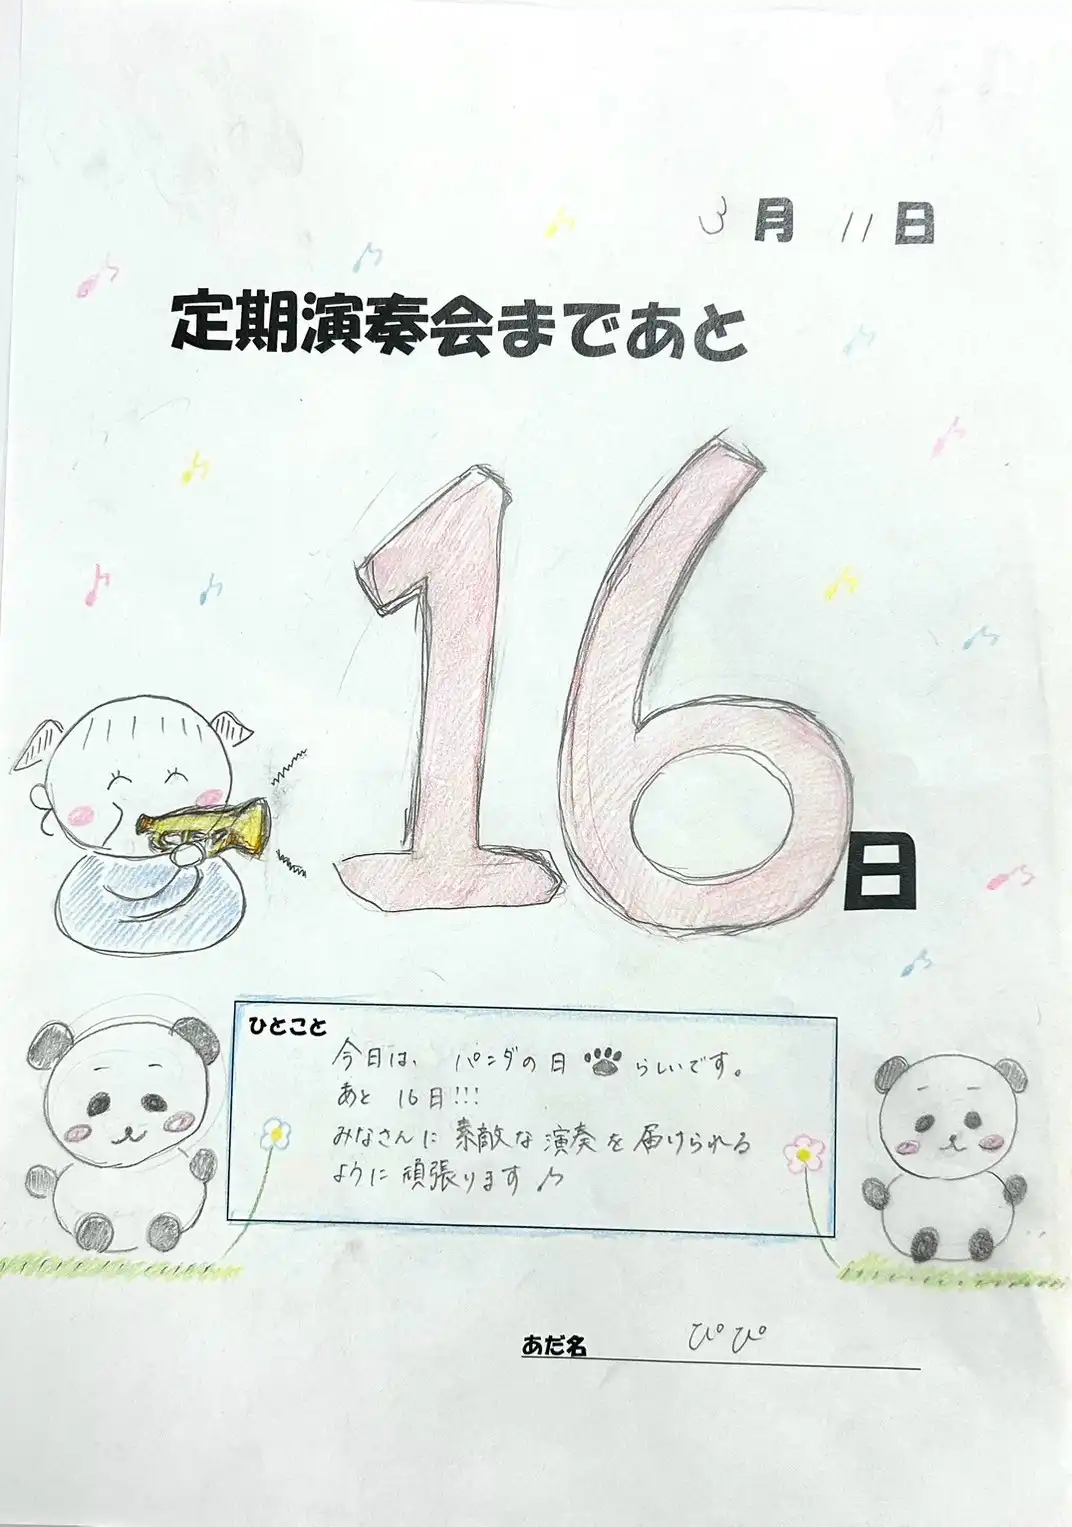 3月11日
定期演奏会まであと
16日
ひとこと
今日は、パンダの日らしいです。
あと 16日!!!
みなさんに 素敵な演奏を届けられる
ように 頑張ります♪
あだ名 ぴぴ